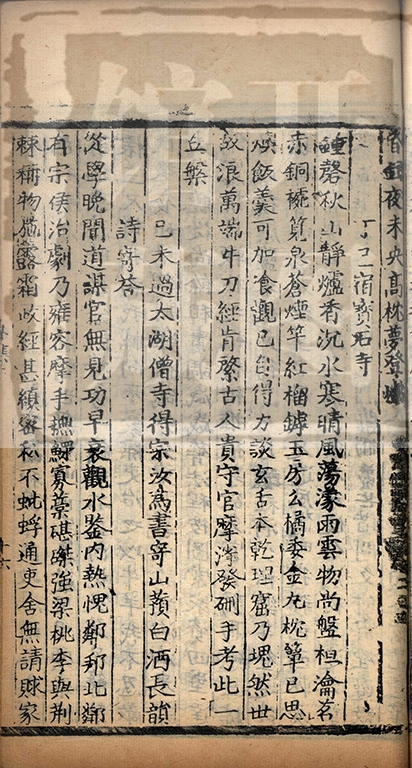 夜未央高枕夢登
丁巳宿寶石寺
鐘磬秋山靜爐香沉水寒晴風蕩濛雨雲物尚盤桓瀹茗
赤銅椀筧泉蒼煙竿紅榴罅玉房么橘委金丸枕簟已思
煖飯羹可加飡觀己自得方談玄舌本乾理窟乃塊然世
故浪萬端牛刀經肯綮古人貴守官摩挲發硎手考此一
丘槃
己未過太湖僧寺得宗汝為書寄山蕷白酒長韻
詩寄答
從學晚聞道謀官無見功早衰觀水鑒內熱愧鄰邦此鄰
有宗侯治劇乃雍容摩手撫鰥寡藁碪磔強梁桃李與荊
棘稱物施露霜政經甚縝密私不蚍蜉通吏舍無請賕家